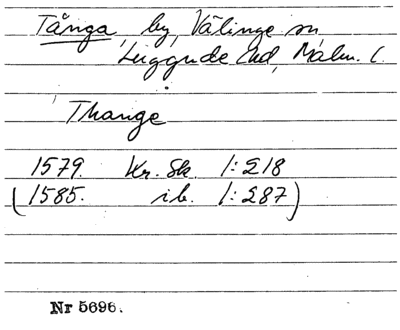 Tånga, by, Välinge sn,
Luggude hd, Malm. l.
Thange
1579. Kr. Sk. 1:218
(1585. ib. 1:287)
Nr 5696.